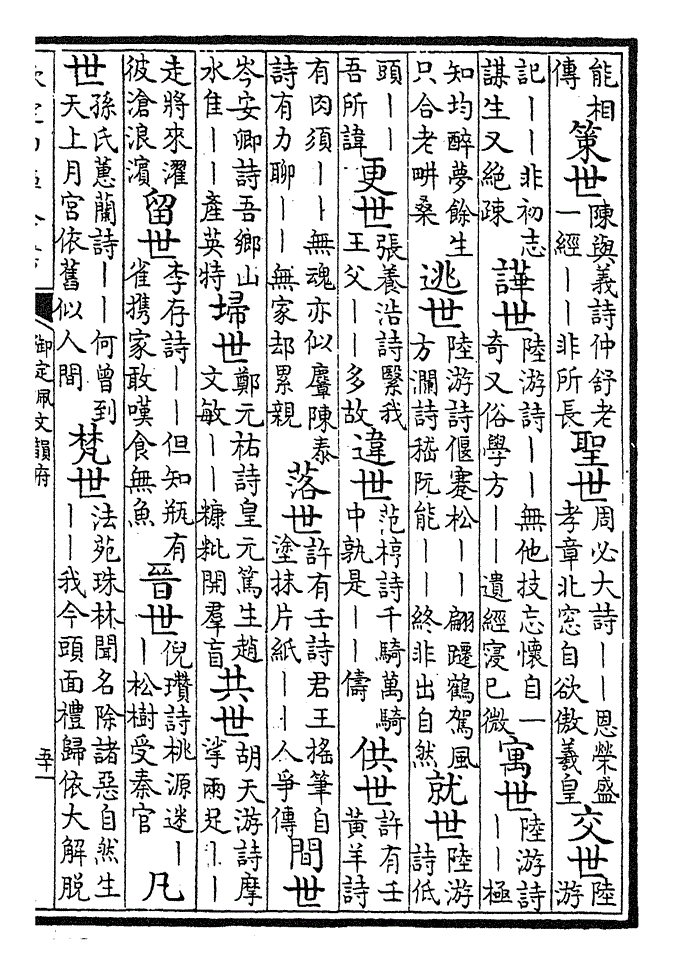 能相傳策世陳與義詩仲舒老一經——非所長聖世周必大詩——恩榮盛孝章北窓自欲傲羲皇交世陸游
記——非初志謀生又絶疎譁世陸游詩——無他技忘懷自一奇又俗學方——遺經寖已微寓世陸游詩——極
知均醉夢餘生只合老畊桑逃世陸游詩偃蹇松——翩躚鶴駕風方瀾詩嵇阮能——終非出自然就世陸游詩低
頭——吾所諱更世張養浩詩緊我王父——多故違世范梈詩千騎萬騎中孰是——儔供世許有壬黃羊詩
有肉須——無魂亦似麞陳泰詩有力聊——無家却累親落世許有壬詩君王搖筆自塗抹片紙——人爭傳間世
岑安卿詩吾鄉山水隹——產英特埽世鄭元祐詩皇元篤生趙文敏——糠粃開羣盲共世胡天游詩摩挲兩足——
走將來濯彼滄浪濱留世李存詩——但知瓶有雀攜家敢嘆食無魚晉世倪瓚詩桃源迷——松樹受秦官凡
世孫氏蕙蘭詩——何曾到天上月宮依舊似人間梵世法苑珠林聞名除諸惡自然生——我今頭面禮歸依大解脫
御定佩文韻府